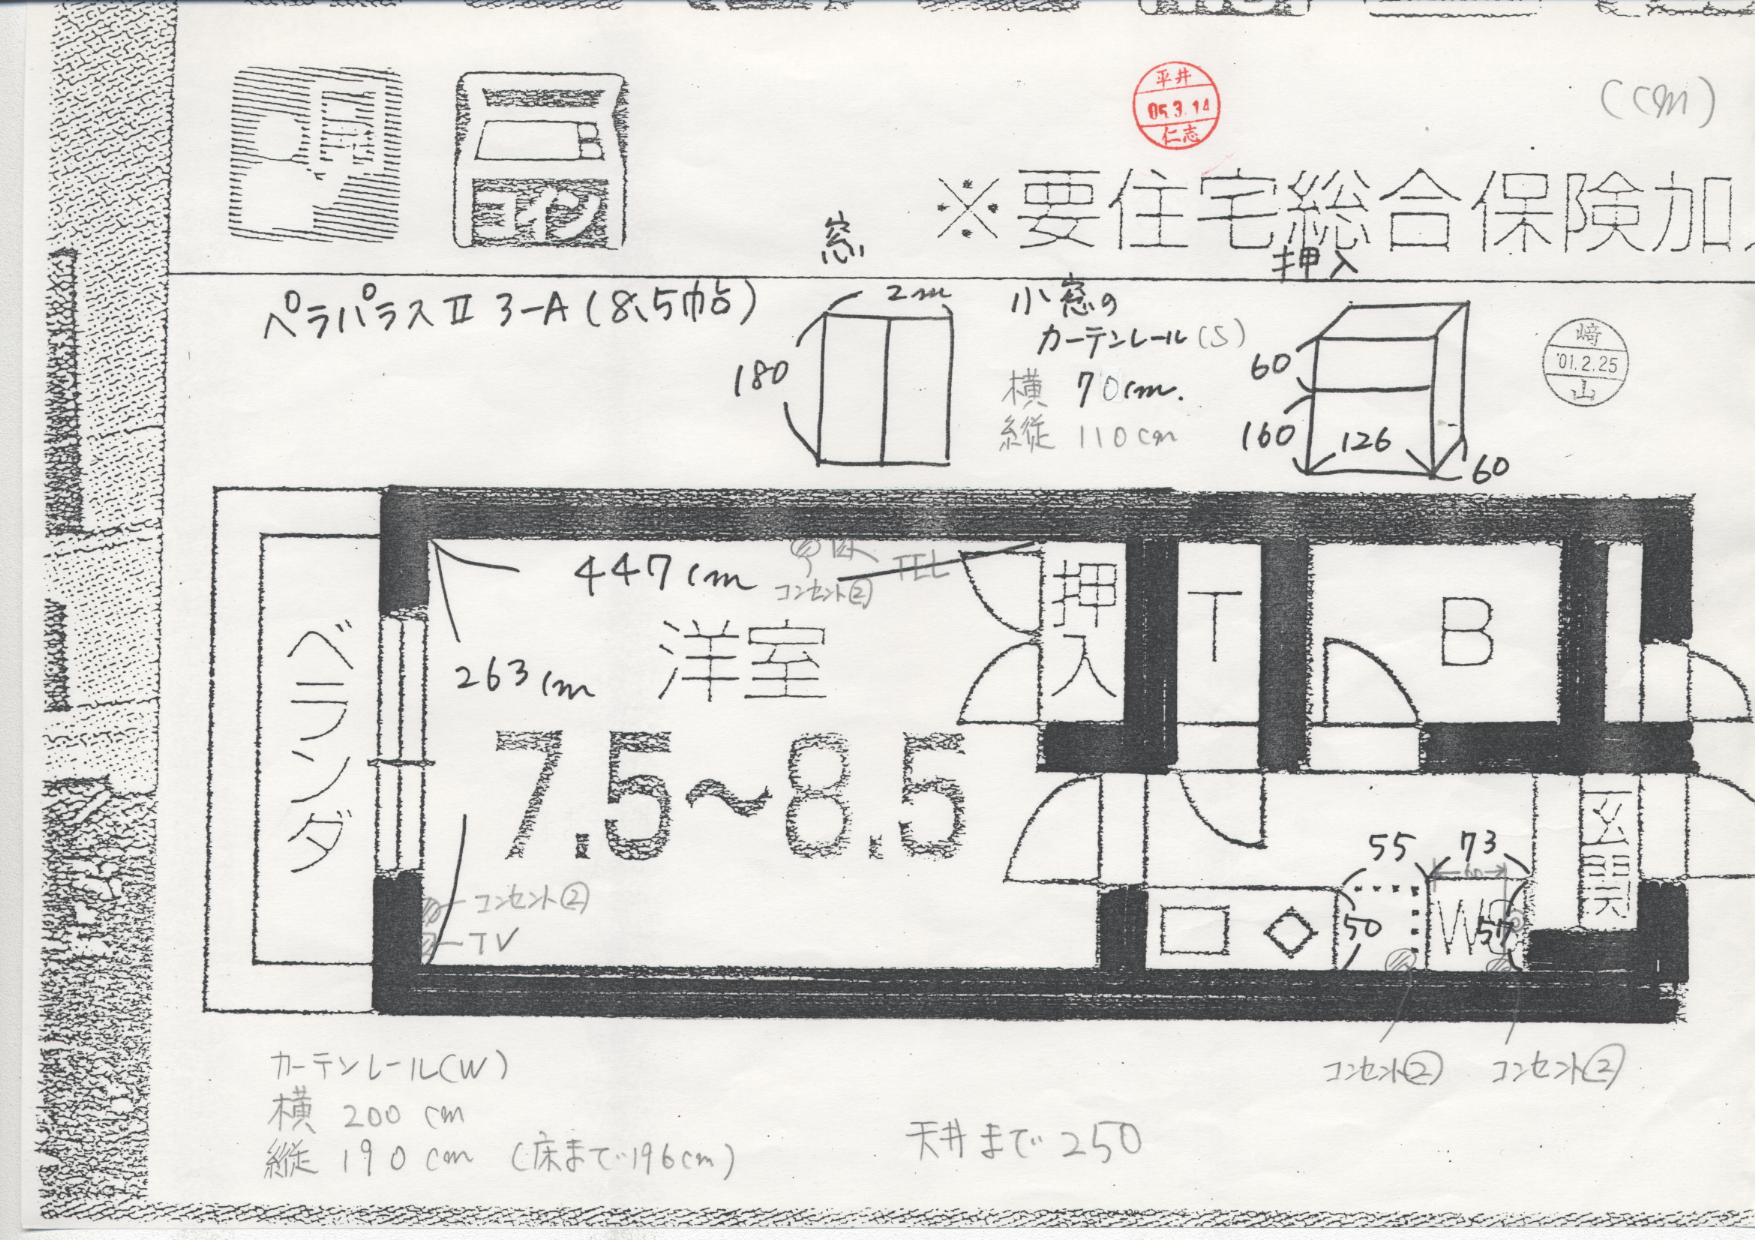 コイン
平井
05.3.14
仁志
(cm)
※要住宅総合保険加
窓
押入
ペラパラスⅡ 3-A (8.5帖)
2m
180
小窓の
カーテンレール(S)
横 70cm.
縦 110cm
60
160
126
60
崎
'01.2.25
山
447cm
コンセント②
TEL
263cm
洋室
7.5~8.5
押入
T
B
ベランダ
玄関
55
73
60
50
W
57
コンセント②
TV
コンセント②
コンセント②
カーテンレール(W)
横 200cm
縦 190cm (床まで196cm)
天井まで250